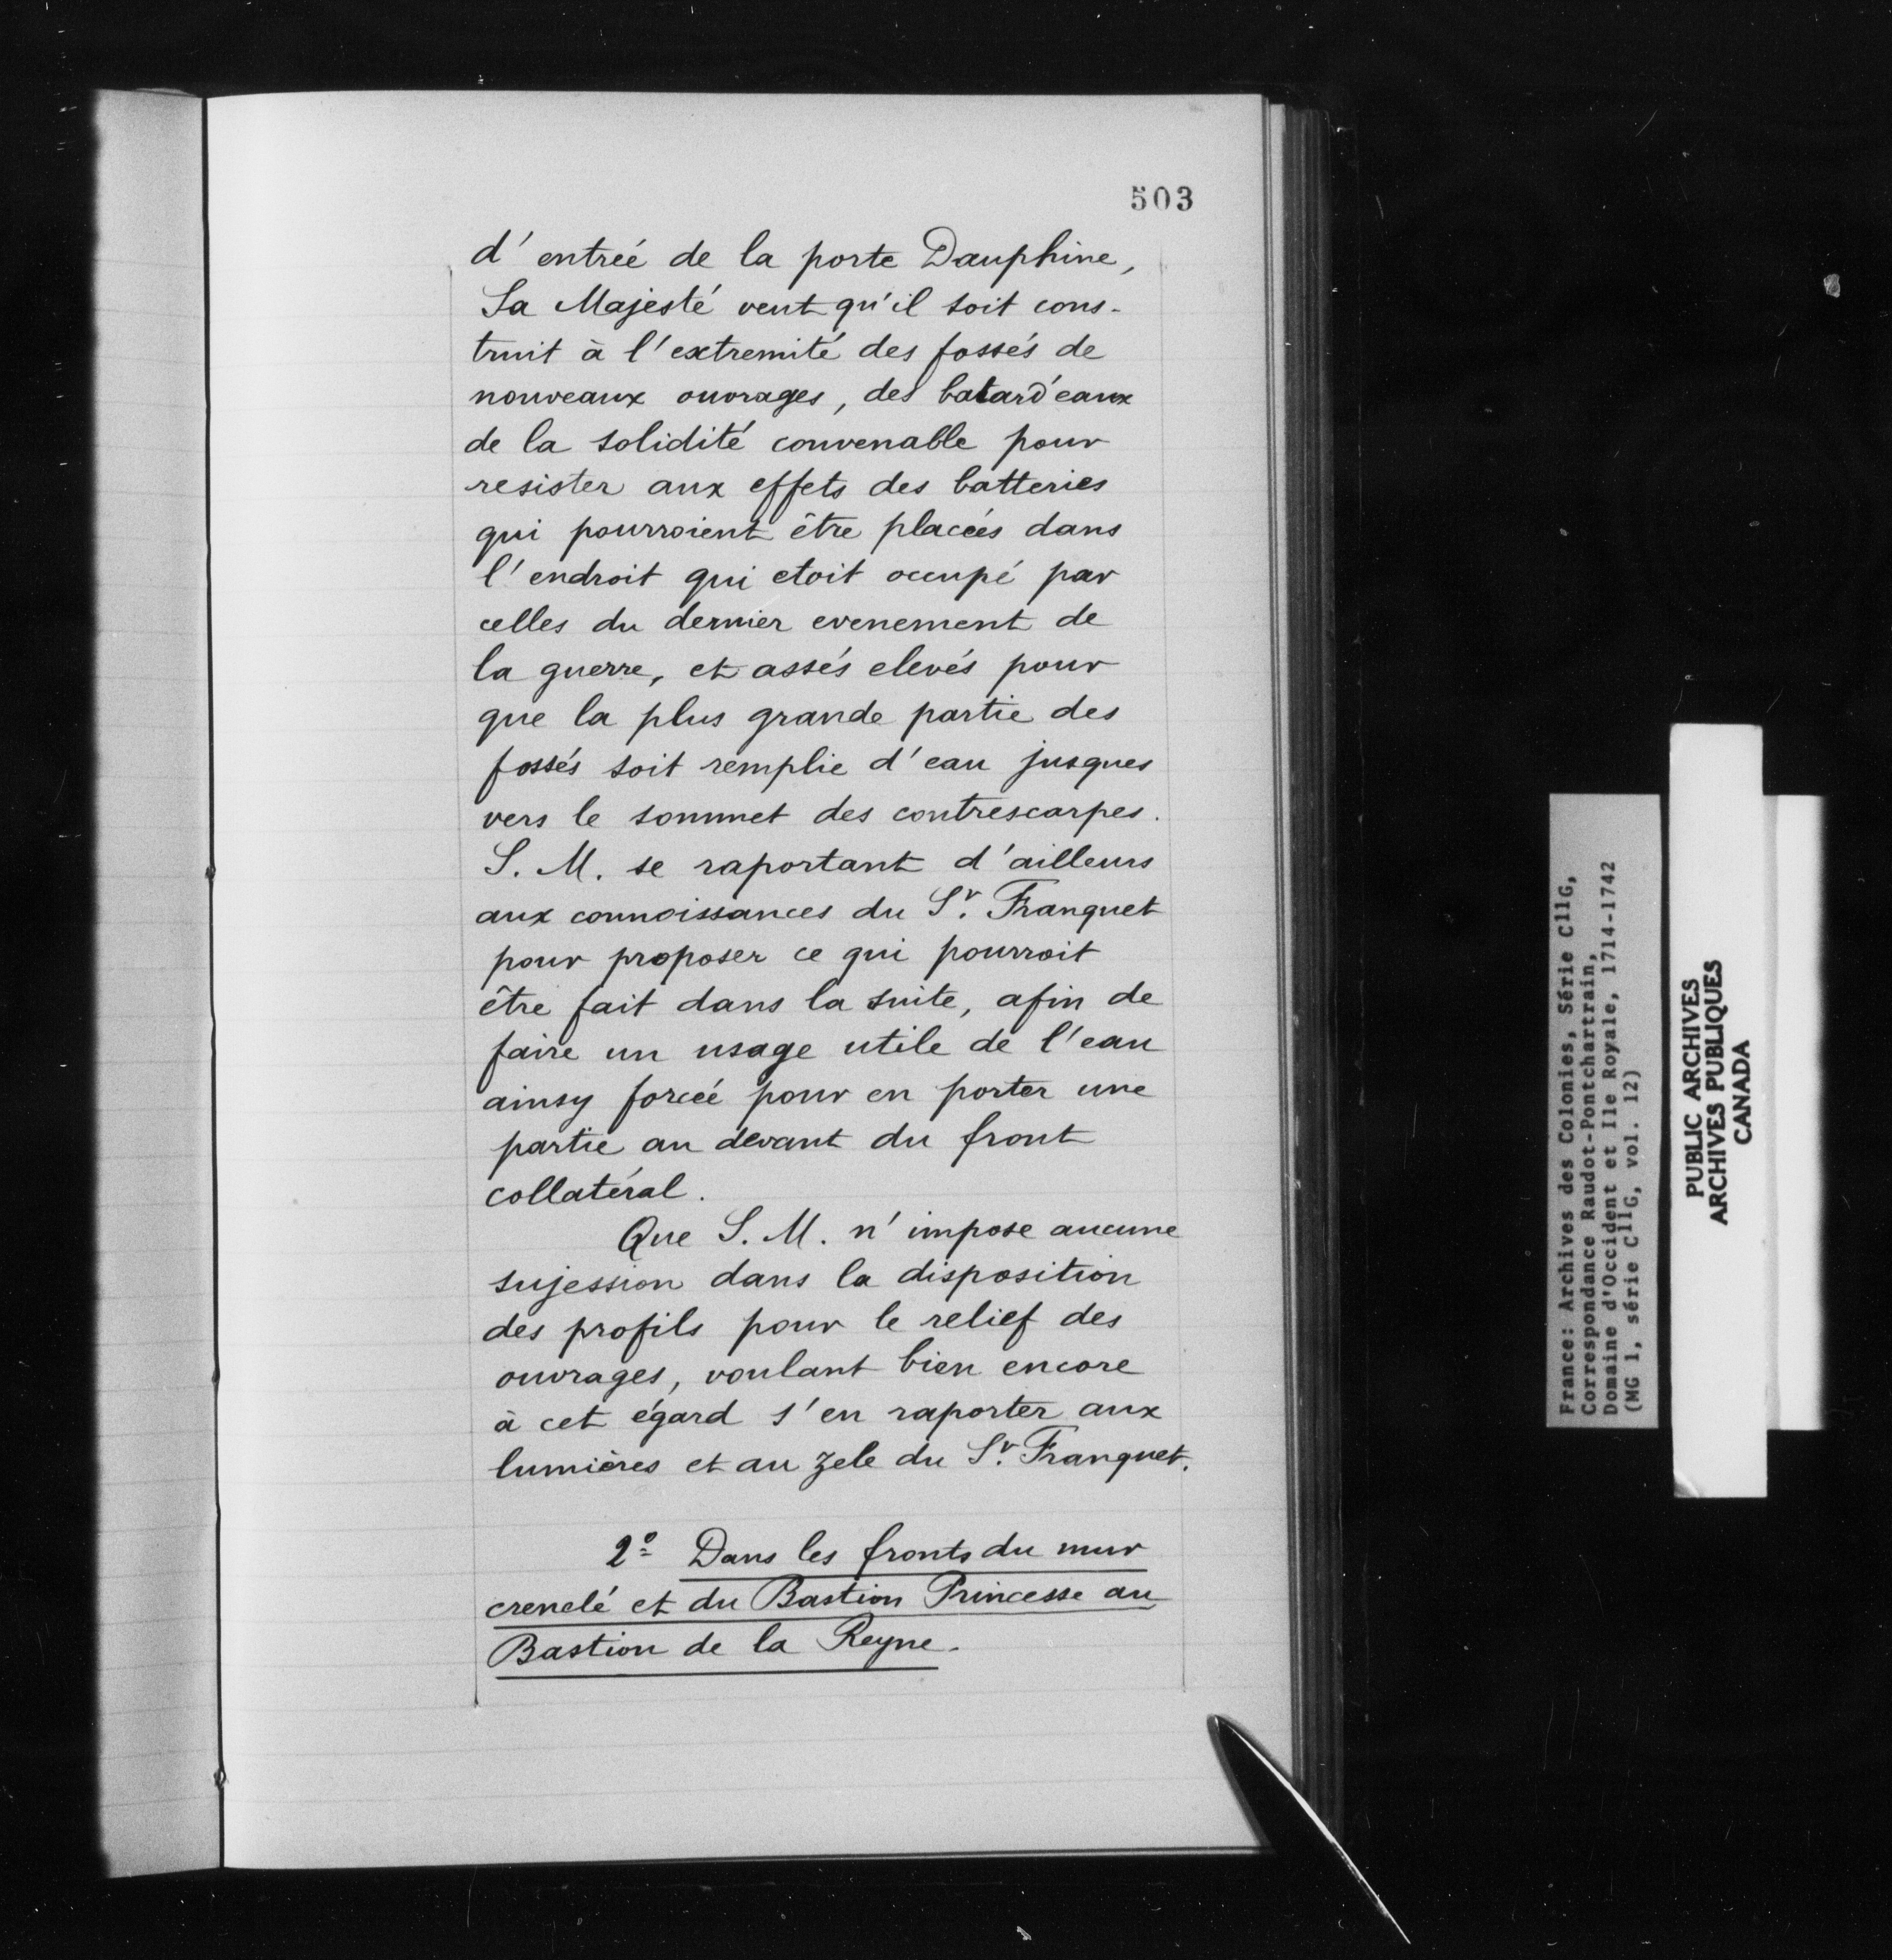 503
d'entreé de la porte Dauphine,
Sa Majesté veut qu'il soit cons-
truit à l'extremité des fossés de
nouveaux ouvrages, des batard'eaux
de la solidité convenable pour
resister aux effets des batteries
qui pourroient être placées dans
l'endroit qui etoit occupé par
celles du dernier evenement de
la guerre, et assés elevés pour
que la plus grande partie des
fossés soit remplie d'eau jusques
vers le sommet des contrescarpes.
S. M. se raportant d'ailleurs
aux connoissances du Sr. Franquet
pour proposer ce qui pourroit
être fait dans la suite, afin de
faire un usage utile de l'eau
ainsy forcée pour en porter une
partie au devant du front
collatéral.
Que S. M. n'impose aucune
sujession dans la disposition
des profils pour le relief des
ouvrages, voulant bien encore
à cet égard s'en raporter aux
lumières et au zele du Sr. Franquet.
2º Dans les fronts du mur
crenelé et du Bastion Princesse au
Bastion de la Reyne.
France: Archives des Colonies, Série C11G,
Correspondance Raudot-Pontchartrain,
Domaine d'Occident et Ile Royale, 1714-1742
(MG 1, série C11G, vol. 12)
PUBLIC ARCHIVES
ARCHIVES PUBLIQUES
CANADA